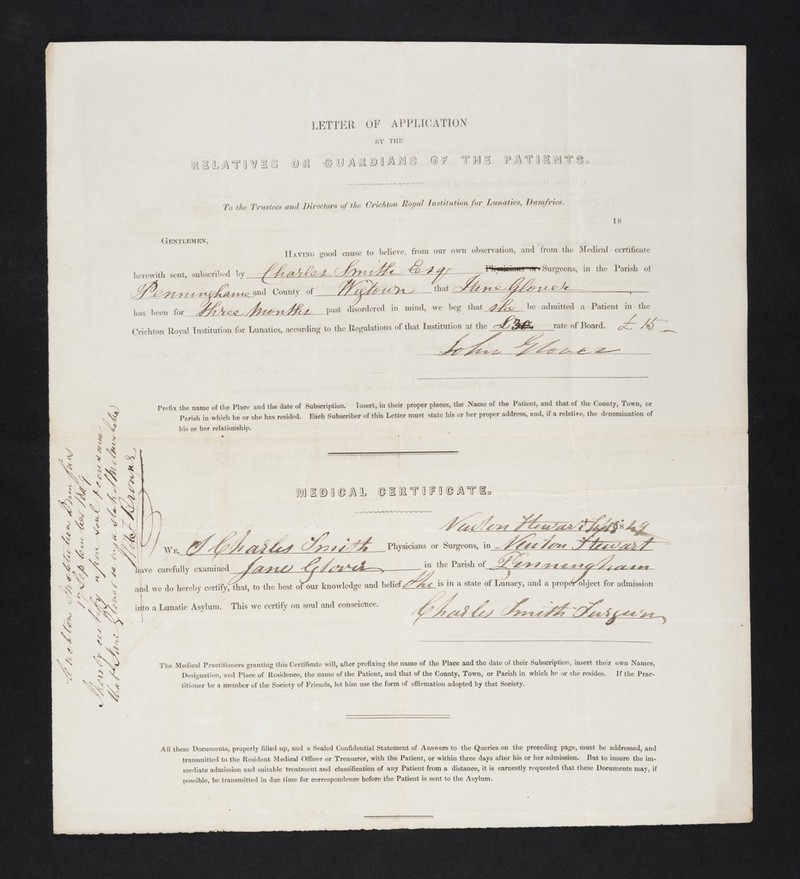 LETTER OF APPLICATION
BY THE
RELATIVES OR GUARDIANS OF THE PATIENTS.
To the Trustees and Directors of the Crichton Royal Institution for Lunatics, Dumfries.
18
GENTLEMEN,
HAVING good cause to believe, from our own observation, and from the Medical certificate
herewith sent, subscribed by Charles Smith Esqr Physicians or Surgeons, in the Parish of
Penninghame and County of Wigtown that Jane Glover
has been for three months past disordered in mind, we beg that she be admitted a Patient in the
Crichton Royal Institution for Lunatics, according to the Regulations of that Institution at the £30. rate of Board. £15 –
John Glover
Prefix the name of the Place and the date of Subscription. Insert, in their proper places, the Name of the Patient, and that of the County, Town, or
Parish in which he or she has resided. Each Subscriber of this Letter must state his or her proper address, and, if a relative, the denomination of
his or her relationship.
MEDICAL CERTIFICATE.
Newton Stewart 49
WE, I Charles Smith Physicians or Surgeons, in Newton Stewart
have carefully examined Jane Glover in the Parish of Penningham
and we do hereby certify, that, to the best of our knowledge and belief She is in a state of Lunacy, and a proper object for admission
into a Lunatic Asylum. This we certify on soul and conscience.
Charles Smith Surgeon
The Medical Practitioners granting this Certificate will, after prefixing the name of the Place and the date of their Subscription, insert their own Names,
Designation, and Place of Residence, the name of the Patient, and that of the County, Town, or Parish in which he or she resides. If the Prac-
titioner be a member of the Society of Friends, let him use the form of affirmation adopted by that Society.
All these Documents, properly filled up, and a Sealed Confidential Statement of Answers to the Queries on the preceding page, must be addressed, and
transmitted to the Resident Medical Officer or Treasurer, with the Patient, or within three days after his or her admission. But to insure the im-
mediate admission and suitable treatment and classification of any Patient from a distance, it is earnestly requested that these Documents may, if
possible, be transmitted in due time for correspondence before the Patient is sent to the Asylum.
Crichton Institution Dumfries
September 1849
I hereby certify upon soul & conscience
that Jane Glover is in a state of Melancholia